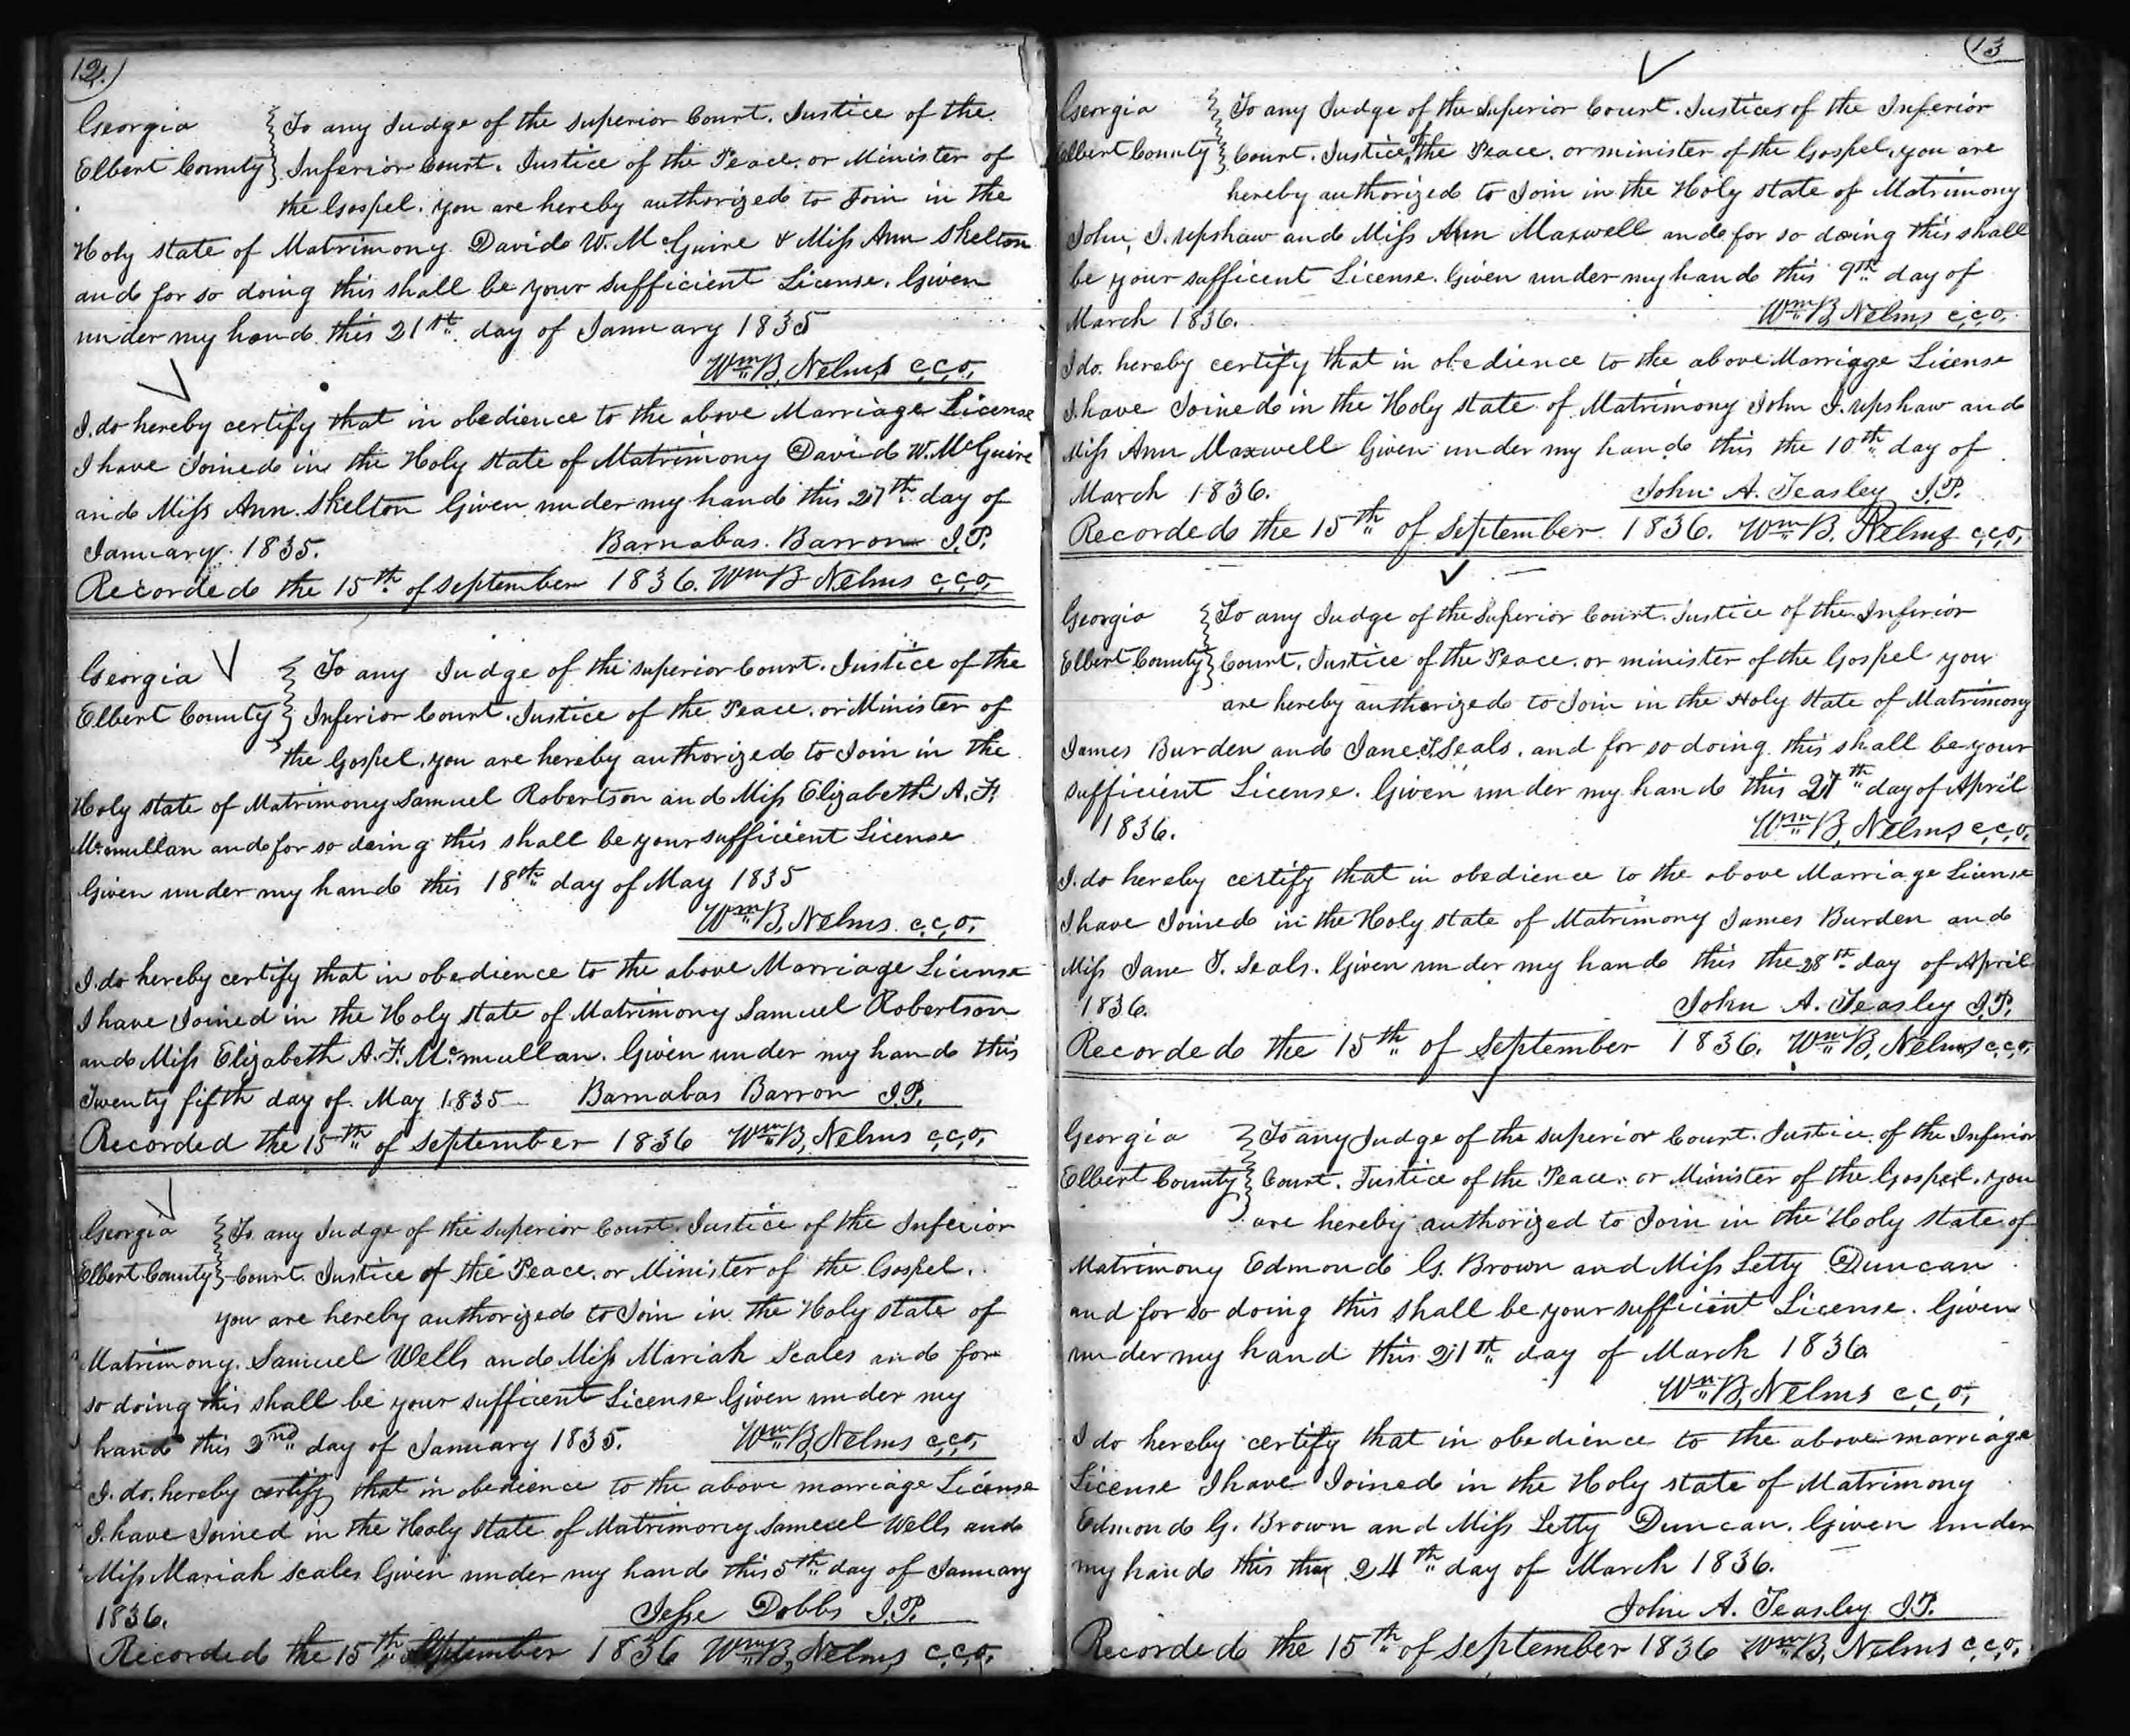 12.
Georgia } To any Judge of the superior Court. Justice of the
Elbert County } Inferior Court. Justice of the Peace. or Minister of
the Gospel. you are hereby authorized to Join in the
Holy state of Matrimony David W. McGuire & Miss Ann Skelton
and for so doing this shall be your sufficient License. Given
under my hand this 21st day of January 1835
Wm B, Nelms c,c,o,
I do hereby certify that in obedience to the above Marriage License
I have Joined in the Holy state of Matrimony David W. McGuire
and Miss Ann. Skelton Given under my hand this 27th day of
January. 1835. Barnabas. Barron J.P.
Recorded the 15th of september 1836. Wm B Nelms c,c,o,
Georgia } To any Judge of the superior Court. Justice of the
Elbert County } Inferior Court. Justice of the Peace. or Minister of
the Gospel. you are hereby authorized to Join in the
Holy state of Matrimony Samuel Robertson and Miss Elizabeth A. F.
Mcmullan and for so doing this shall be your sufficient License
Given under my hand this 18th day of May 1835
Wm B, Nelms. c,c,o,
I do hereby certify that in obedience to the above Marriage License
I have Joined in the Holy state of Matrimony Samuel Robertson
and Miss Elizabeth A. F. Mcmullan. Given under my hand this
Twenty fifth day of May 1835 Barnabas Barron J.P.
Recorded the 15th of september 1836 Wm B, Nelms c,c,o,
Georgia } To any Judge of the superior Court. Justice of the Inferior
Elbert County } Court. Justice of the Peace. or Minister of the Gospel.
you are hereby authorized to Join in the Holy state of
Matrimony. Samuel Wells and Miss Mariah Scales and for
so doing this shall be your sufficent License Given under my
hand this 2nd day of January 1835. Wm B, Nelms c,c,o,
I do. hereby certify that in obedience to the above marriage License
I have Joined in the Holy state of Matrimony Samuel Wells and
Miss Mariah Scales Given under my hand this 5th day of January
1836. Jesse Dobbs J.P.
Recorded the 15th September 1836 Wm B, Nelms c.c.o,
13
Georgia } To any Judge of the Superior Court. Justices of the Inferior
Elbert County } Court. Justice of the Peace. or minister of the Gospel. you are
hereby authorized to Join in the Holy state of Matrimony
John, J. upshaw and Miss Ann Maxwell and for so doing this shall
be your sufficent License. Given under my hand this 9th day of
March 1836. Wm B, Nelms c,c,o,
I do. hereby certify that in obedience to the above Marriage License
I have Joined in the Holy state of Matrimony John J. upshaw and
Miss Ann Maxwell Given under my hand this the 10th day of
March 1836. John A. Teasley J.P.
Recorded the 15th of September 1836. Wm B. Nelms c,c,o,
Georgia } To any Judge of the Superior Court. Justice of the Inferior
Elbert County } Court. Justice of the Peace. or minister of the Gospel you
are hereby authorized to Join in the Holy state of Matrimony
James Burden and Jane T. Seals. and for so doing this shall be your
sufficient License. Given under my hand this 27th day of April
1836. Wm B, Nelms c,c,o,
I do hereby certify that in obedience to the above Marriage License
I have Joined in the Holy state of Matrimony James Burden and
Miss Jane T. Seals. Given under my hand this the 28th day of April
1836. John A. Teasley J.P.
Recorded the 15th of September 1836. Wm B, Nelms c,c,o,
Georgia } To any Judge of the superior Court. Justice of the Inferior
Elbert County } Court. Justice of the Peace. or Minister of the Gospel. you
are hereby authorized to Join in the Holy state of
Matrimony Edmond G. Brown and Miss Letty Duncan
and for so doing this shall be your sufficient License. Given
under my hand this 21th day of March 1836
Wm B, Nelms c,c,o,
I do hereby certify that in obedience to the above marriage
License I have Joined in the Holy state of Matrimony
Edmond G. Brown and Miss Letty Duncan. Given under
my hand this the 24th day of March 1836.
John A. Teasley J.P.
Recorded the 15th of September 1836 Wm B, Nelms c,c,o,